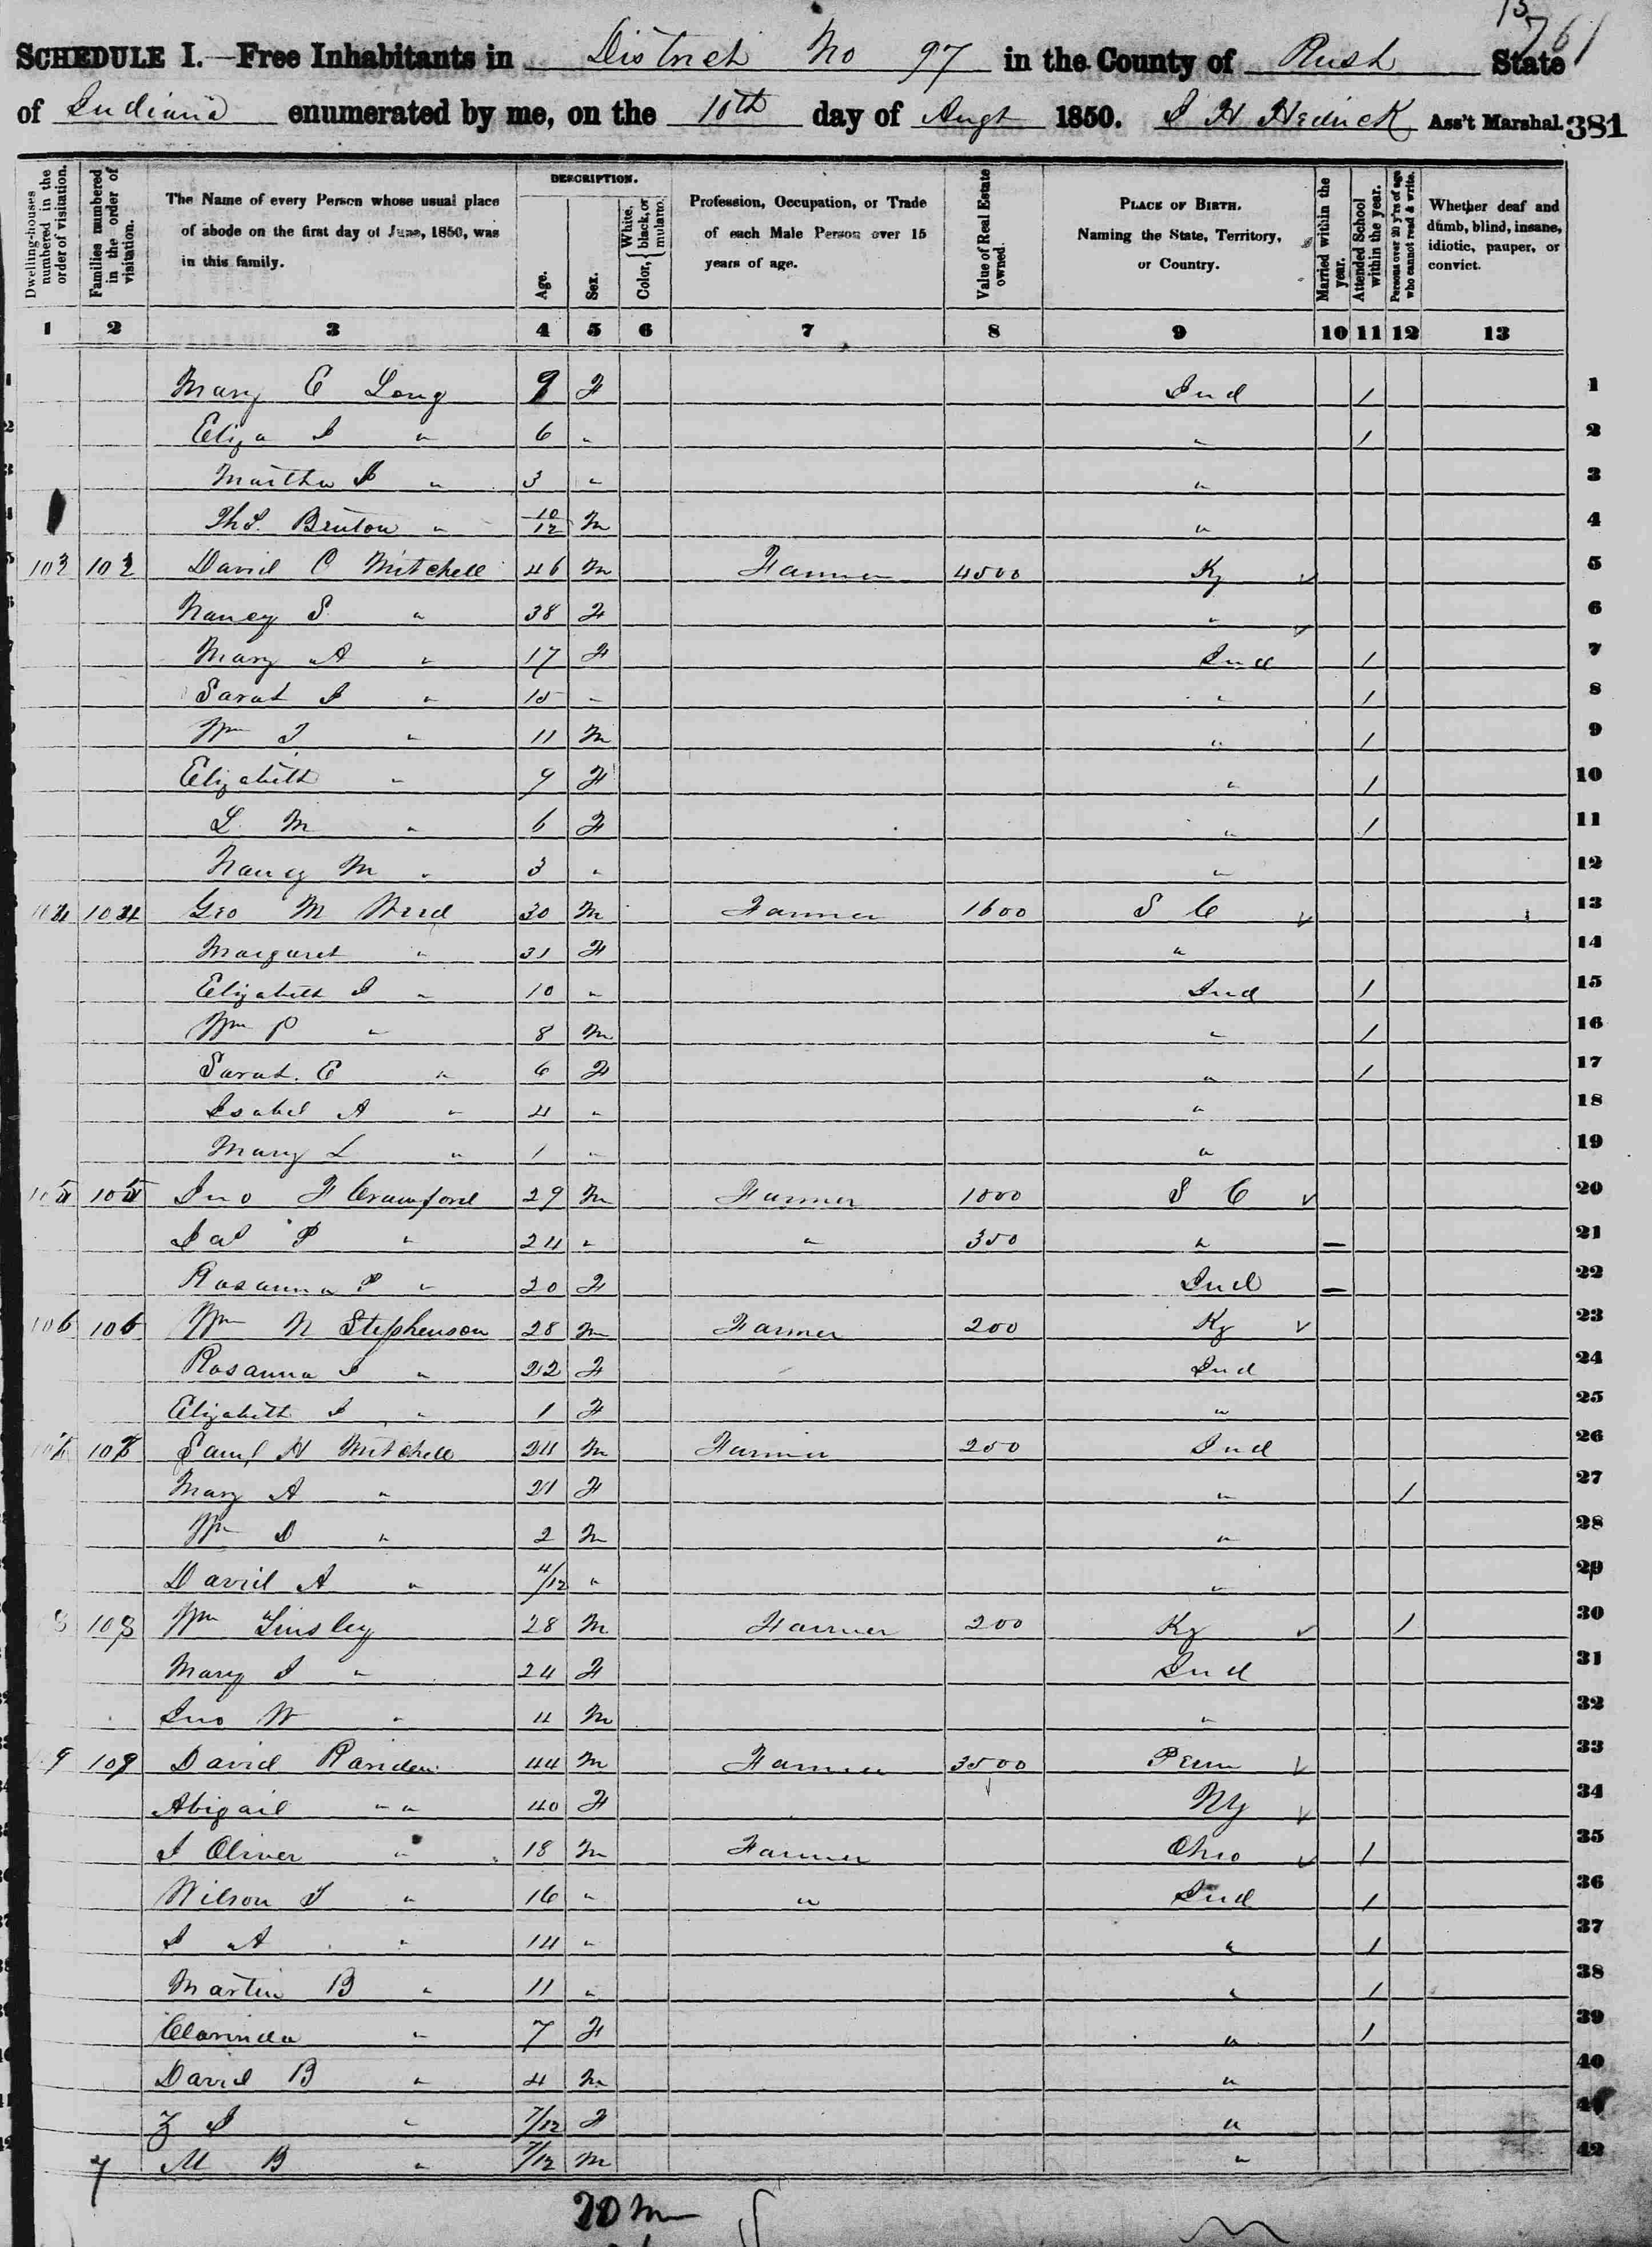 15
761
SCHEDULE I.—Free Inhabitants in District No 97 in the County of Rush State
of Indiana enumerated by me, on the 10th day of Augt 1850. S H Hedrick Ass't Marshal. 381
Dwelling-houses numbered in the order of visitation.
Families numbered in the order of visitation.
The Name of every Person whose usual place of abode on the first day of June, 1850, was in this family.
DESCRIPTION.
Age.
Sex.
Color, { White, black, or mulatto.
Profession, Occupation, or Trade of each Male Person over 15 years of age.
Value of Real Estate owned.
PLACE OF BIRTH. Naming the State, Territory, or Country.
Married within the year.
Attended School within the year.
Persons over 20 y'rs of age who cannot read & write.
Whether deaf and dumb, blind, insane, idiotic, pauper, or convict.
1 2 3 4 5 6 7 8 9 10 11 12 13
Mary E Long 9 F Ind / 1
Eliza J " 6 " " / 2
Martha J " 3 " " 3
Ths. Benton " 10/12 m " 4
103 103 David C Mitchell 46 m Farmer 4500 Ky 5
Nancy S " 38 F " 6
Mary A " 17 F Ind / 7
Sarah J " 15 " " / 8
Wm J " 11 m " / 9
Elizabeth " 9 F " / 10
L M " 6 F " / 11
Nancy M " 3 " " 12
104 104 Geo M 30 m Farmer 1600 S C 13
Margaret " 31 F " 14
Elizabeth J " 10 " Ind / 15
Wm P " 8 m " / 16
Sarah E " 6 F " / 17
Isabel A " 4 " " 18
Mary L " 1 " " 19
105 105 Jno F Crawford 29 m Farmer 1000 S C 20
Jas P " 24 " " 350 " — 21
Rosanna P " 20 F Ind — 22
106 106 Wm N Stephenson 28 m Farmer 200 Ky 23
Rosanna J " 22 F Ind 24
Elizabeth J " 1 F " 25
107 107 Saml H Mitchell 24 m Farmer 200 Ind 26
Mary A " 21 F " / 27
Wm D " 2 m " 28
David A " 4/12 " " 29
8 108 Wm Linsley 28 m Farmer 200 Ky / 30
Mary J " 24 F Ind 31
Jno W " 4 m " 32
9 109 David 44 m Farmer 3500 Penn 33
Abigail " " 40 F Ny 34
J Oliver " 18 m Farmer Ohio / 35
Wilson J " 16 " " Ind / 36
J A " 14 " " / 37
Martin B " 11 " " / 38
Clarinda " 7 F " / 39
David B " 4 m " 40
Z J " 7/12 F " 41
M B " 7/12 m " 42
7
20 m